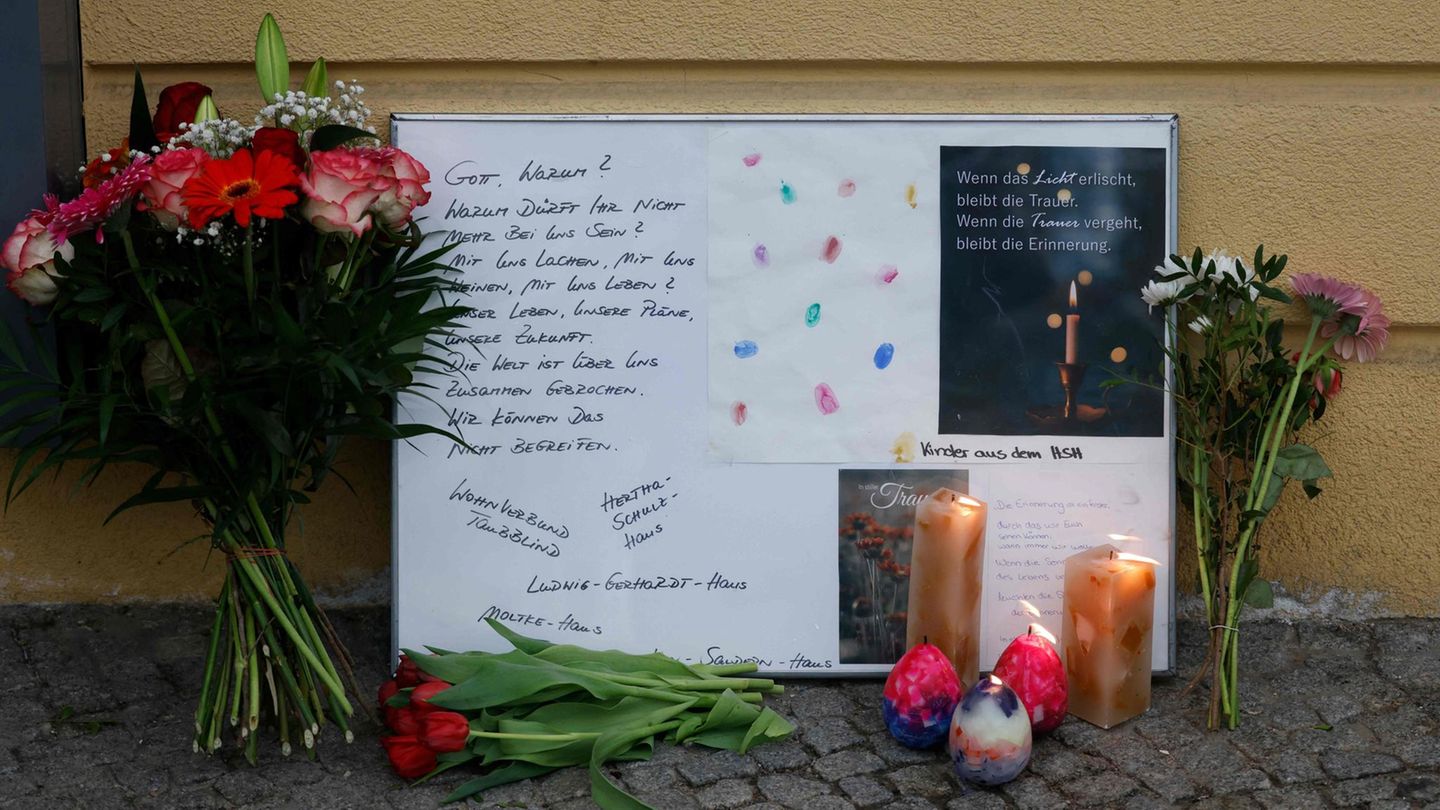 GOTT, WARUM?
WARUM DÜRFT IHR NICHT
MEHR BEI UNS SEIN?
MIT UNS LACHEN, MIT UNS
WEINEN, MIT UNS LEBEN?
UNSER LEBEN, UNSERE PLÄNE,
UNSERE ZUKUNFT.
DIE WELT IST ÜBER UNS
ZUSAMMEN GEBROCHEN.
WIR KÖNNEN DAS
NICHT BEGREIFEN.
WOHNVERBUND
TAUBBLIND
HERTHA-
SCHULZ-
HAUS
LUDWIG-GERHARDT-HAUS
MOLTKE-HAUS
-HAUS
Wenn das Licht erlischt,
bleibt die Trauer.
Wenn die Trauer vergeht,
bleibt die Erinnerung.
Kinder aus dem HSH
In stiller
Trau
Die Erinnerung ist ein Fenster,
durch das wir Euch
sehen können,
wann immer wir wolle
Wenn die Son
des Lebens
leuchten die S
der Erinner